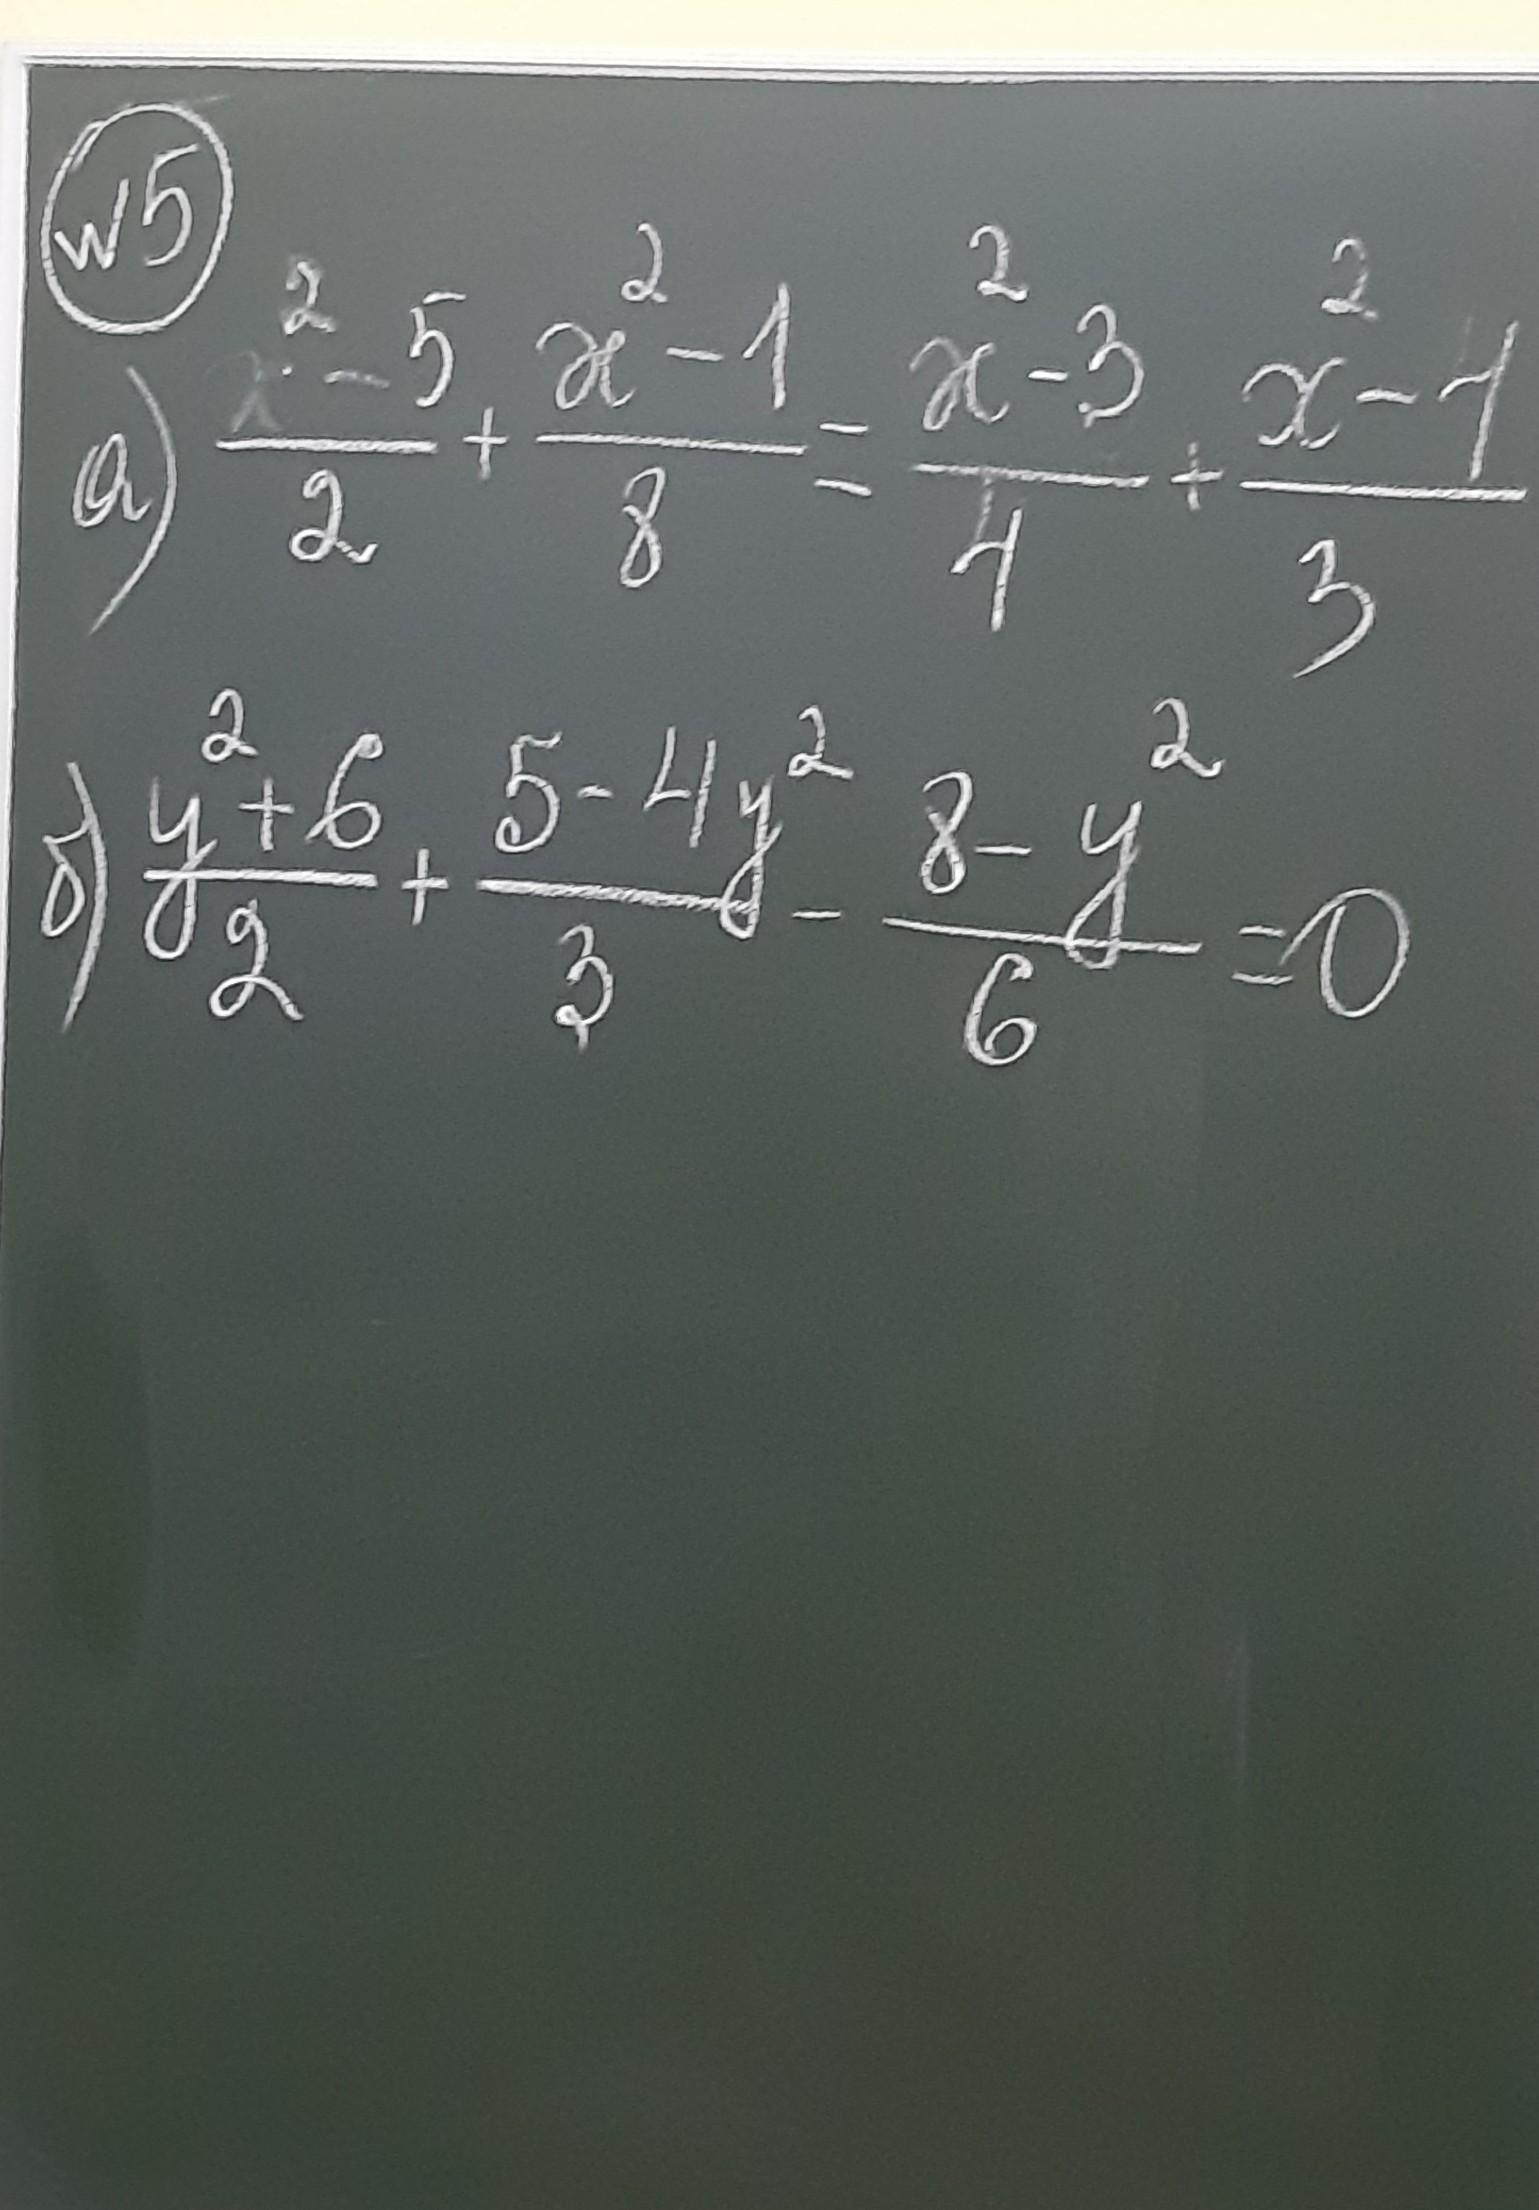 №5
а) (x² - 5)/2 + (x² - 1)/8 = (x² - 3)/4 + (x² - 4)/3
б) (y² + 6)/2 + (5 - 4y²)/3 - (8 - y²)/6 = 0